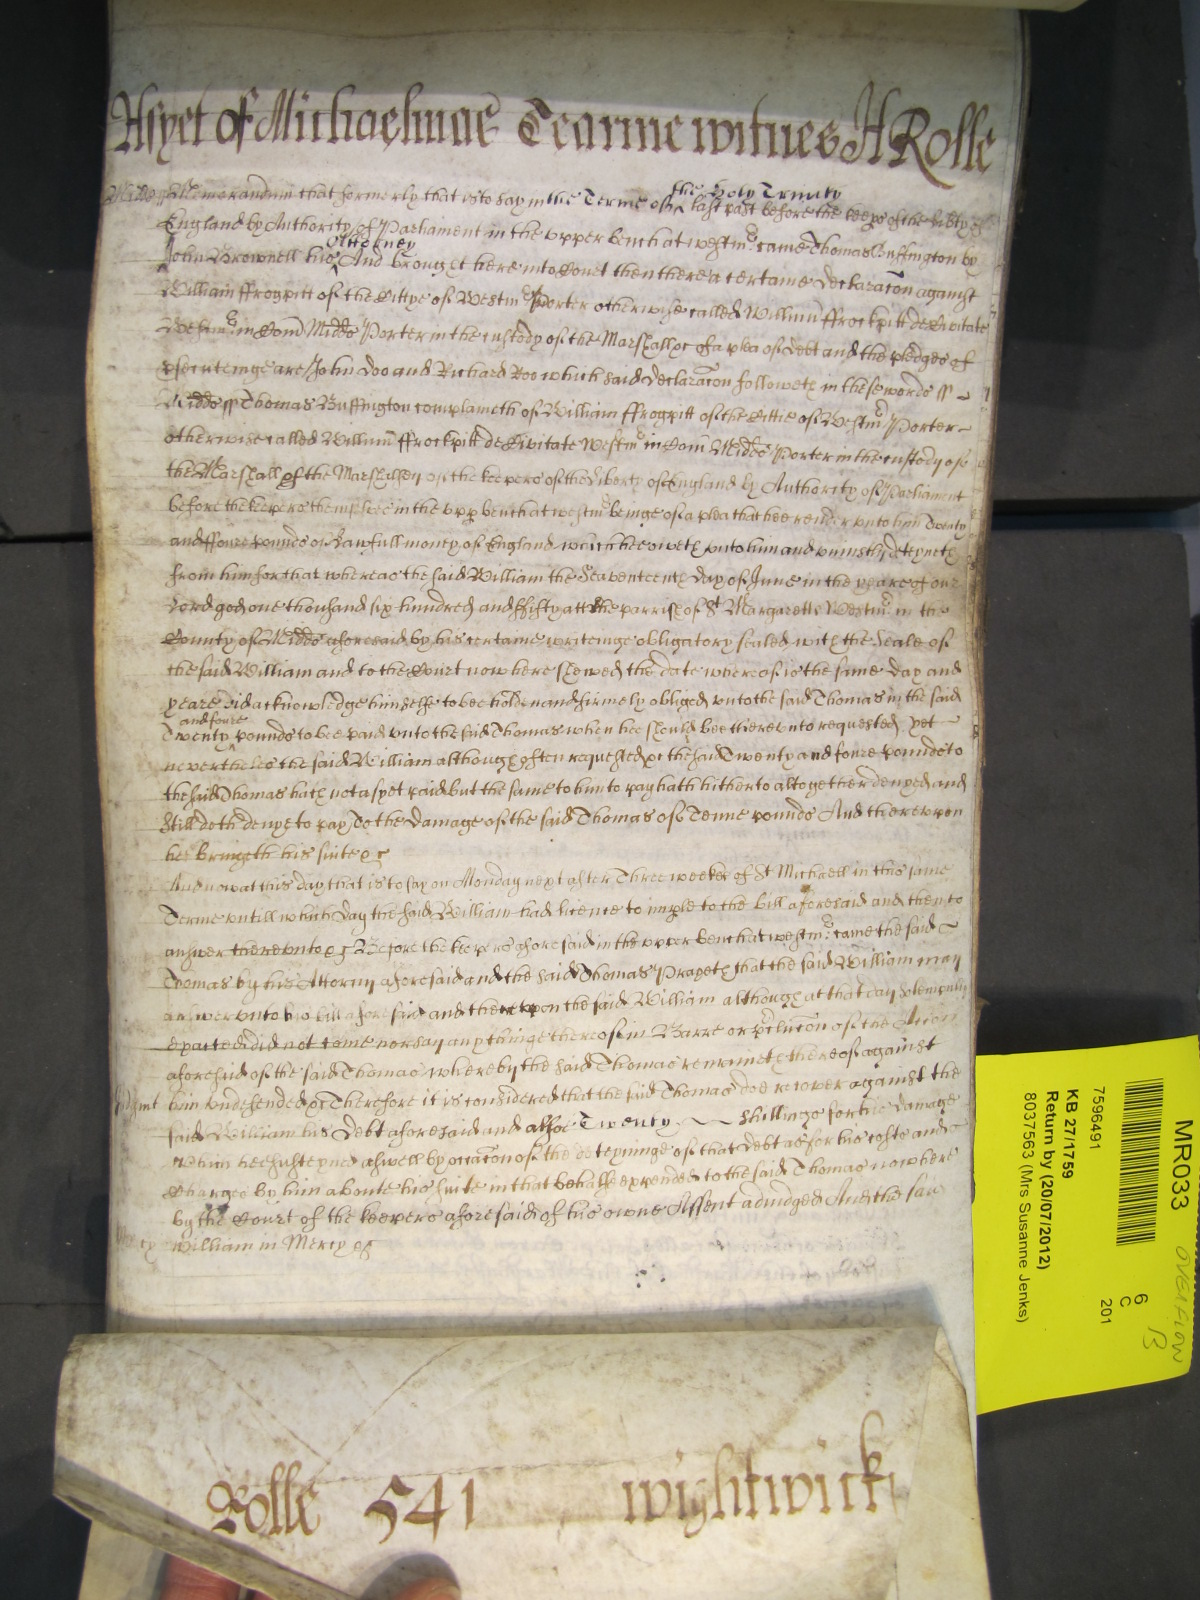 Asyet of Michaelmas Tearme witnes H Rolle
the Holy Trinity
Midds ss Memorandum that formerly that is to say in the Terme of ^ last past before the keeps of the libty of
England by Authority of Parliament in the upper bench at westmr came Thomas Buffington by
Attorney
John Brownell his ^ And brought here into Court then there a certaine declaracon against
William ffrogpitt of the Cittye of Westmr Porter otherwise called Willium ffrockpitt de Civitate
Westmr in Com Midds Porter in the custody of the Marshall &c of a plea of debt and the pledges of
psecuteinge are John Doo and Richard Roo which said declaracon followeth in these words ss
Midds ss Thomas Buffington complaineth of William ffrogpitt of the Cittie of Westmr Porter
otherwise called William ffrockpitt de Civitate Westmr in Com Midds Porter in the custody of
the Marshall of the Marshalsey of the keepers of the liberty of England by Authority of Parliament
before the keepers themselves in the upp bench at westmr beinge of a plea that hee render unto him Twenty
and ffoure pounds of Lawfull money of England which hee oweth unto him and uniustly deteyneth
from him for that whereas the said William the Seaventeenth day of June in the yeare of our
Lord god one thousand six hundred and ffifty att the parrish of St Margaretts Westmr in the
County of Midds aforesaid by his certaine writeinge obligatory sealed with the Seale of
the said William and to the Court now here shewed the date whereof is the same day and
yeare did acknowledge himselfe to bee holden and firmely obliged unto the said Thomas in the said
and foure
Twenty ^ pounds to bee paid unto the said Thomas when hee should bee thereunto requested yet
neverthelesse the said William although often requested &c the said Twenty and foure pounds to
the said Thomas hath not as yet paid but the same to him to pay hath hitherto altogether denyed and
still doth denye to pay To the damage of the said Thomas of Tenne pounds And thereupon
hee bringeth his suite &c
And now at this day that is to say on Monday next after Three weekes of St Michaell in this same
Terme untill which day the said William had licence to imple to the bill aforesaid and then to
answer thereunto &c Before the keepers aforesaid in the upper bench at westmr came the said
Thomas by his Attorny aforesaid and the said Thomas Prayeth that the said William may
answer unto his bill aforesaid and thereupon the said William although at that day solempnly
exacted did not come nor say any thinge thereof in Barre or pclucon of the Accon
aforesaid of the said Thomas whereby the said Thomas remaineth thereof against
Judgmt him undefended &c Therefore it is considered that the said Thomas doe recover against the
said William his Debt aforesaid and alsoe Twenty shillings for his damage
which hee susteyned aswell by occacon of the deteyninge of that debt as for his costs and
Charges by him aboute his suite in that behalfe expended to the said Thomas now here
by the Court of the keepers aforesaid of his owne Assent adiudged And the said
Mercy William in Mercy &c
Rolle 541 wightwick
MR033
OVERFLOW
13
6
C
201
7596491
KB 27/1759
Return by (20/07/2012)
8037563 (Mrs Susanne Jenks)